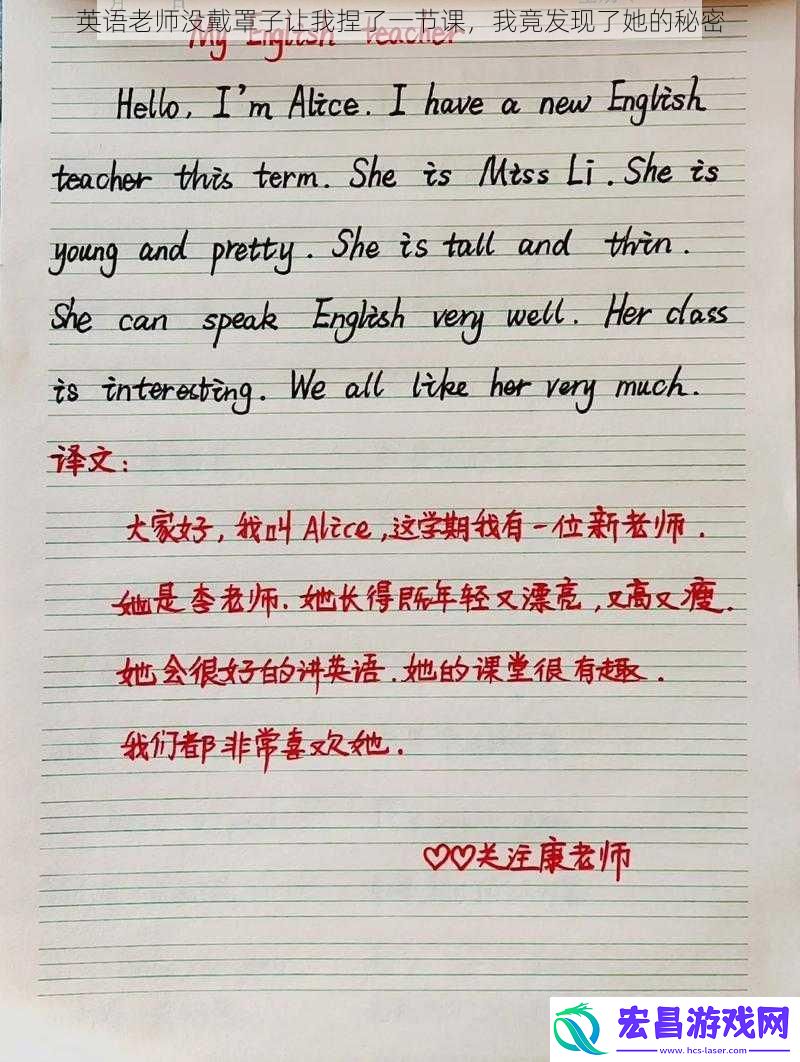 英语老师没戴罩子让我捏了一节课，我竟发现了她的秘密
My English teacher
Hello, I'm Alice. I have a new English
teacher this term. She is Miss Li. She is
young and pretty. She is tall and thin.
She can speak English very well. Her class
is interesting. We all like her very much.
译文:
大家好, 我叫Alice, 这学期我有一位新老师.
她是李老师. 她长得既年轻又漂亮, 又高又瘦.
她会很好的讲英语. 她的课堂很有趣.
我们都非常喜欢她.
♡♡关注康老师
宏昌游戏网
www.hcs-laser.com